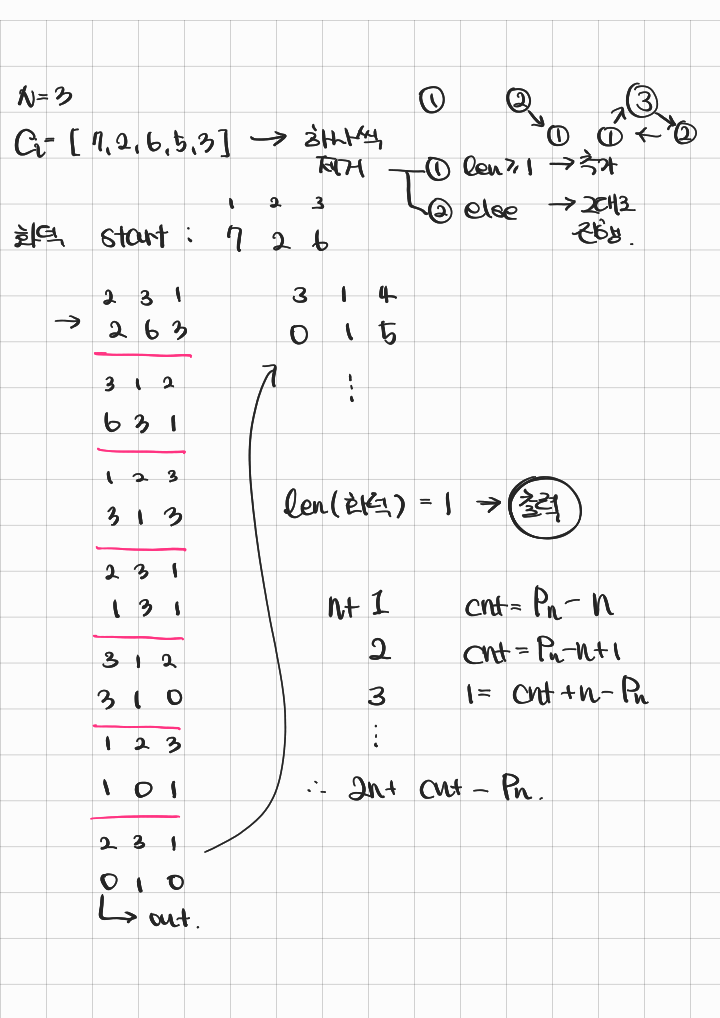 N=3
① ② ① ③ ① ②
Ci= [ 7,2,6,5,3 ] → 하나씩 제거
① len≥1 → 추가
② else → 그대로 진행.
1 2 3
회덕 start : 7 2 6
2 3 1
→ 2 6 3
3 1 2
6 3 1
1 2 3
3 1 3
2 3 1
1 3 1
3 1 2
3 1 0
1 2 3
1 0 1
2 3 1
0 1 0
→ out.
3 1 4
0 1 5
⋮
len(화덕) = 1 → 출력
n+ 1
2
3
⋮
cnt= Pn - n
cnt= Pn-n+1
1= cnt+n-Pn
∴ 2n+ cnt - Pn.